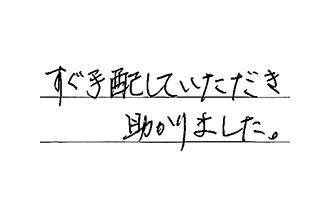 すぐ手配していただき
助かりました。